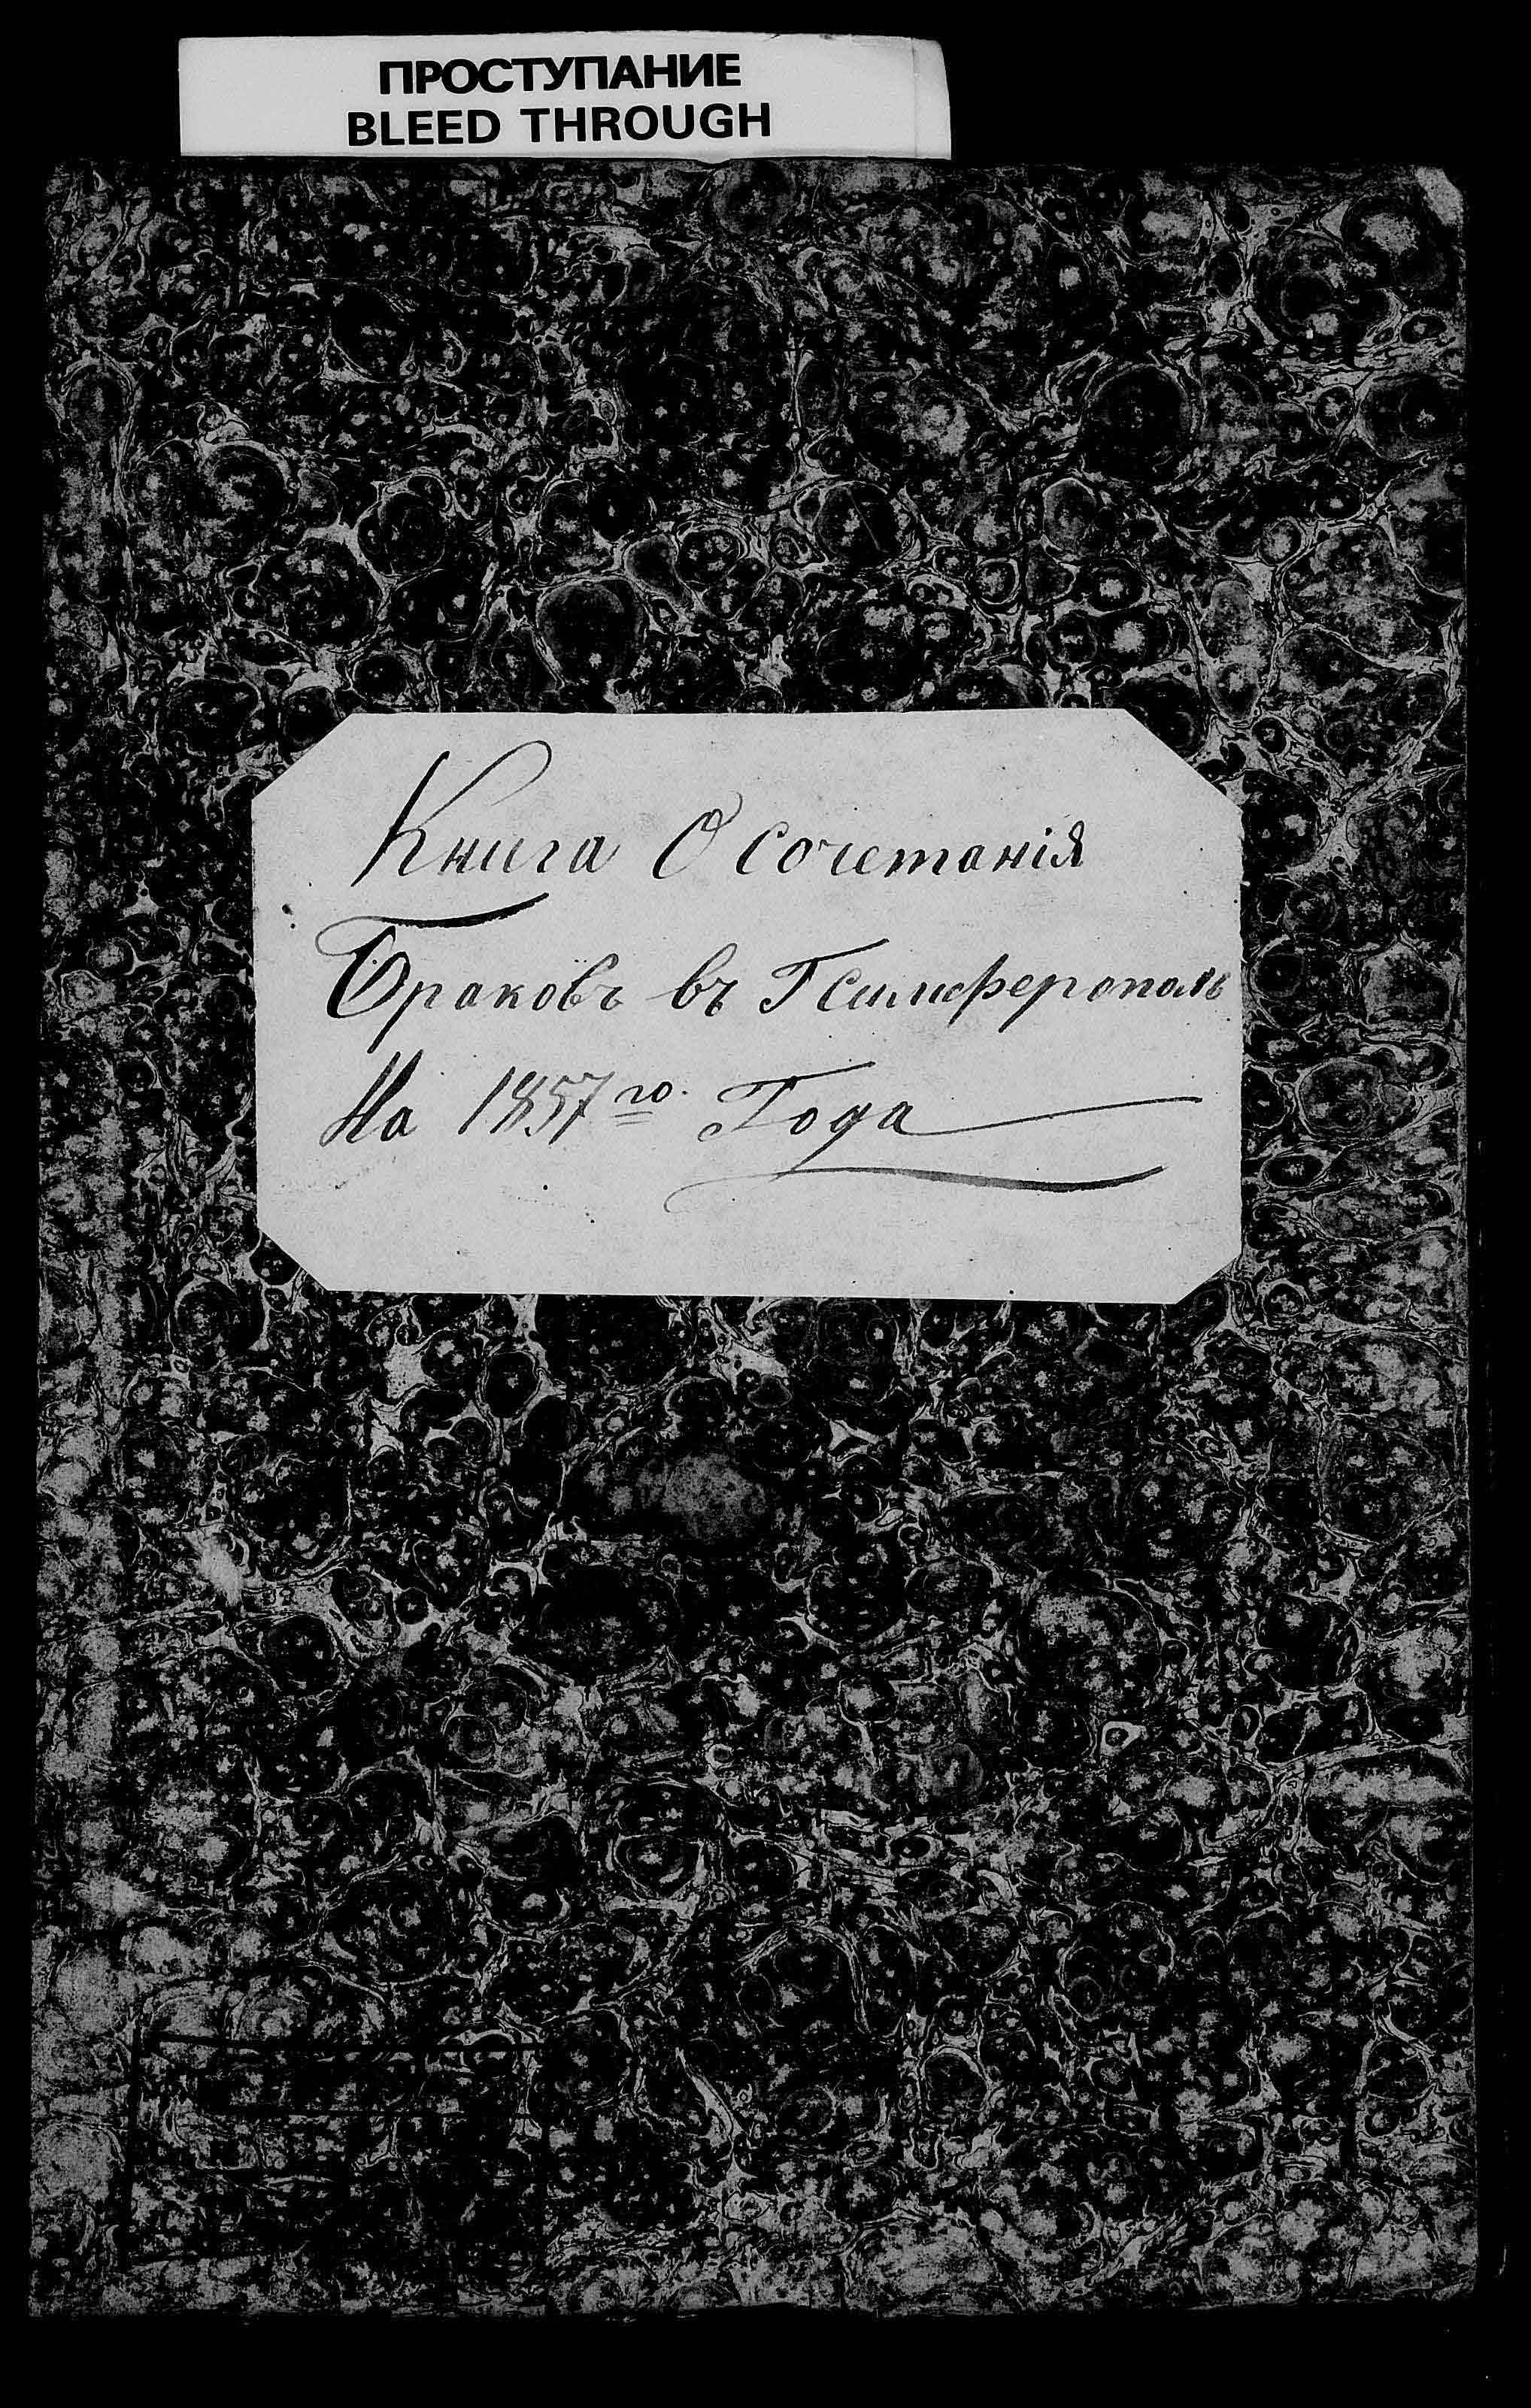 ПРОСТУПАНИЕ
BLEED THROUGH
Книга О сочетанія
Браковъ въ Г Симферополь
На 1857го. Года